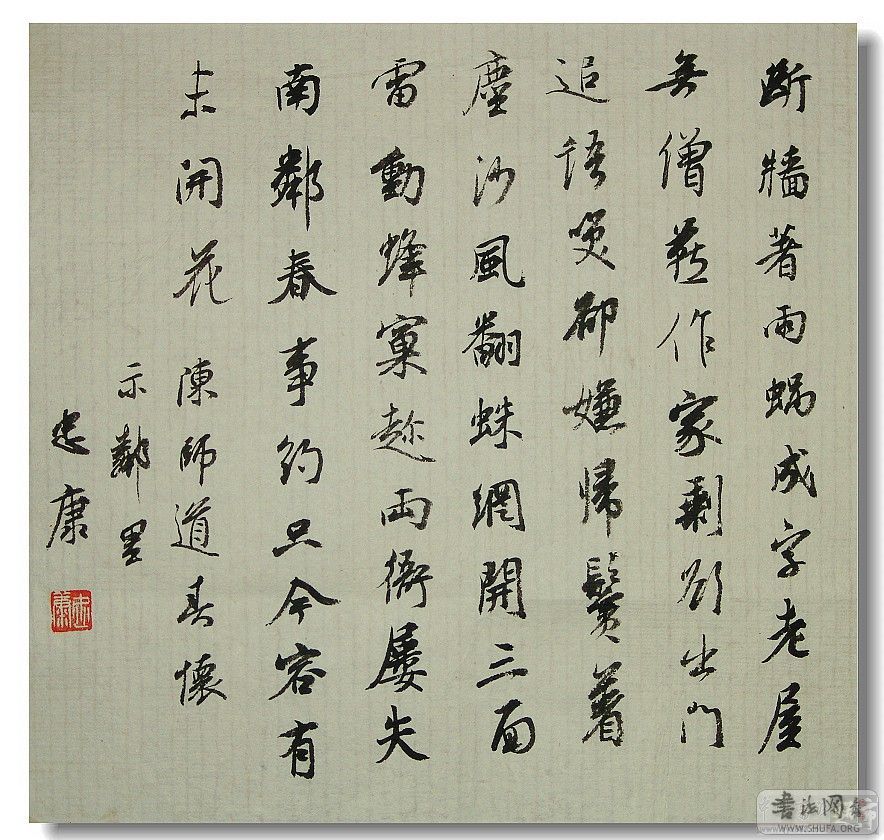 断牆著雨蝸成字老屋
無僧燕作家剩欲出門
追語笑卻嫌歸鬢著
塵沙風翻蛛網開三面
雷動蜂窠趁兩衙屢失
南鄰春事約只今容有
未開花 陳師道春懷
示鄰里
忠康
忠康
书法网
WWW.SHUFA.ORG